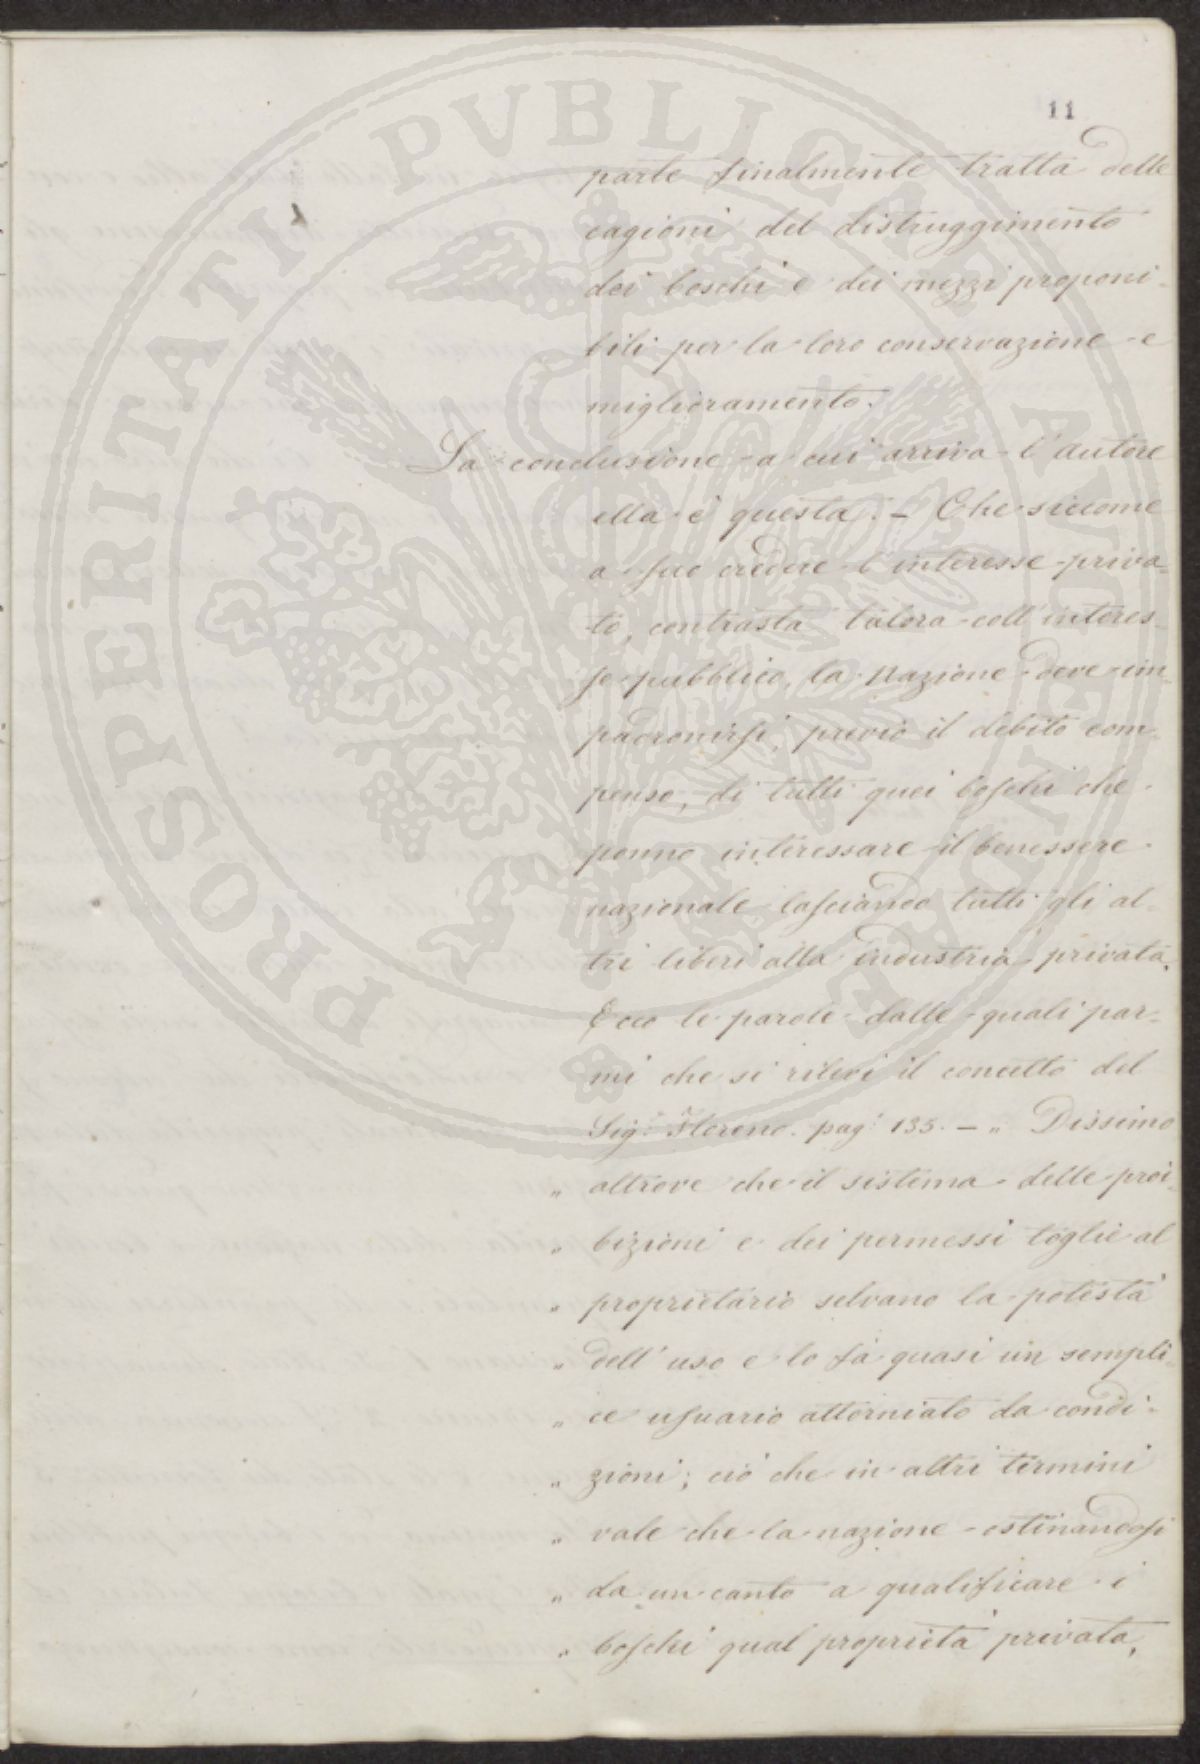 11
parte finalmente tratta delle
cagioni del distruggimento
dei boschi e dei mezzi proponi-
bili per la loro conservazione e
miglioramento.
La conclusione a cui arriva l'autore
ella è questa: – Che siccome
a suo credere l'interesse priva-
to, contrasta talora coll'interes-
se pubblico, la Nazione deve im-
padronirsi, previo il debito com-
penso, di tutti quei boschi che
ponno interessare il benessere
nazionale lasciando tutti gli al-
tri liberi alla industria privata.
Ecco le parole dalle quali par-
mi che si rilevi il concetto del
Sig.r Floreno. pag. 135. – „ Dissimo
„ altrove che il sistema delle proi-
„ bizioni e dei permessi toglie al
„ proprietario selvano la potestà
„ dell'uso e lo fà quasi un sempli-
„ ce usuario attorniato da condi-
„ zioni; ciò che in altri termini
„ vale che la nazione ostinandosi
„ da un canto a qualificare i
„ boschi qual proprietà privata,
PROSPERITATI PVBLICAE AVGENDAE